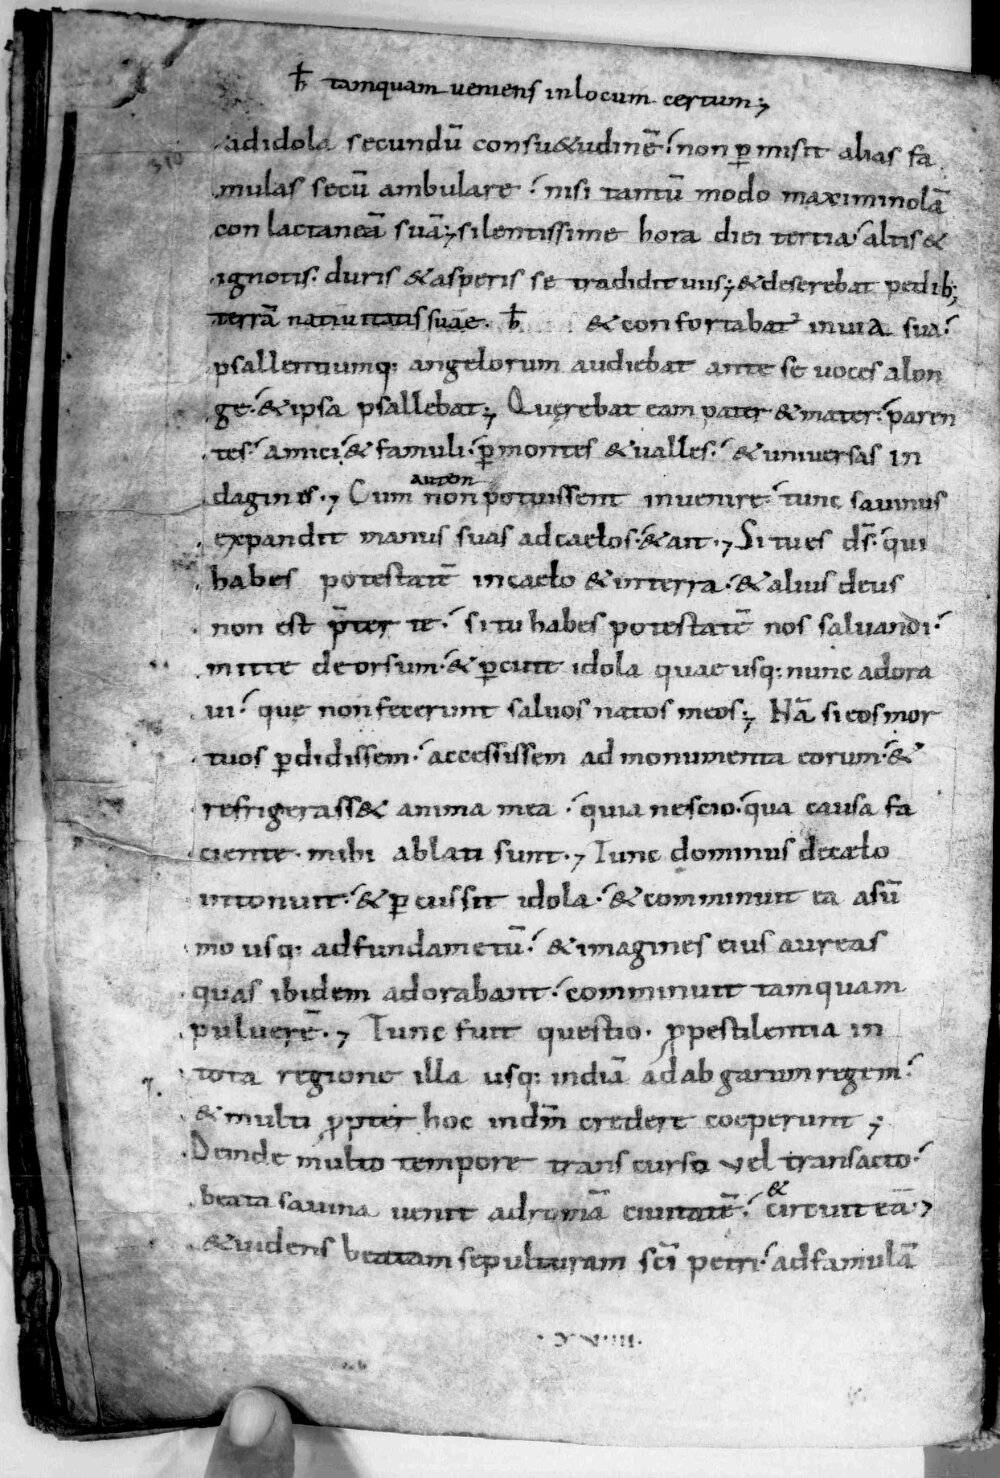 ħ tamquam veniens in locum certum;
310
ad idola secundū consu&udinē. non p̱ misit alias fa
mulas secū ambulare. nisi tantū modo maximinolā
con lactaneā suā; silentissime hora diei tertia. altis &
ignotis. duris & asperis se tradidit viis; & deserebat pedib;
terrā nativitatis suae. ħ & confortabat' in via sua.
psallentiumq: angelorum audiebat ante se voces alon
ge. & ipsa psallebat; Querebat eam pater & mater. paren
tes. amici. & famuli. p̱ montes & valles. & universas in
dagines.; Cum autem non potuissent invenire. tunc savinus
expandit manus suas ad caelos. & ait.; Si tu es ds̄. qui
habes potestatē in caelo & in terra. & alius deus
non est p̄ter te. si tu habes potestatē nos salvandi.
mitte deorsum. & p̱cute idola quae usq: nunc adora
vi. que non fecerunt salvos natos meos; Nā si eos mor
tuos p̱didissem. accessissem ad monumenta eorum. &
refrigerass& anima mea. quia nescio. qua causa fa
ciente. mihi ablati sunt.; Tunc dominus de caelo
intonuit. & p̱cussit idola. & comminuit ea a sum̄
mo usq: ad fundametū. & imagines eius aureas
quas ibidem adorabant. comminuit tamquam
pulverē.; Tunc fuit questio. p̱ pestilentia in
tota regione illa usq: indiā ad abgarum regem.
& multi p̱pter hoc in dm̄ credere coeperunt;
Deinde multo tempore transcurso vel transacto.
beata savina venit ad romā civitatē. & circuit eā;
& videns beatam sepulturam sc̄i petri. ad famulā